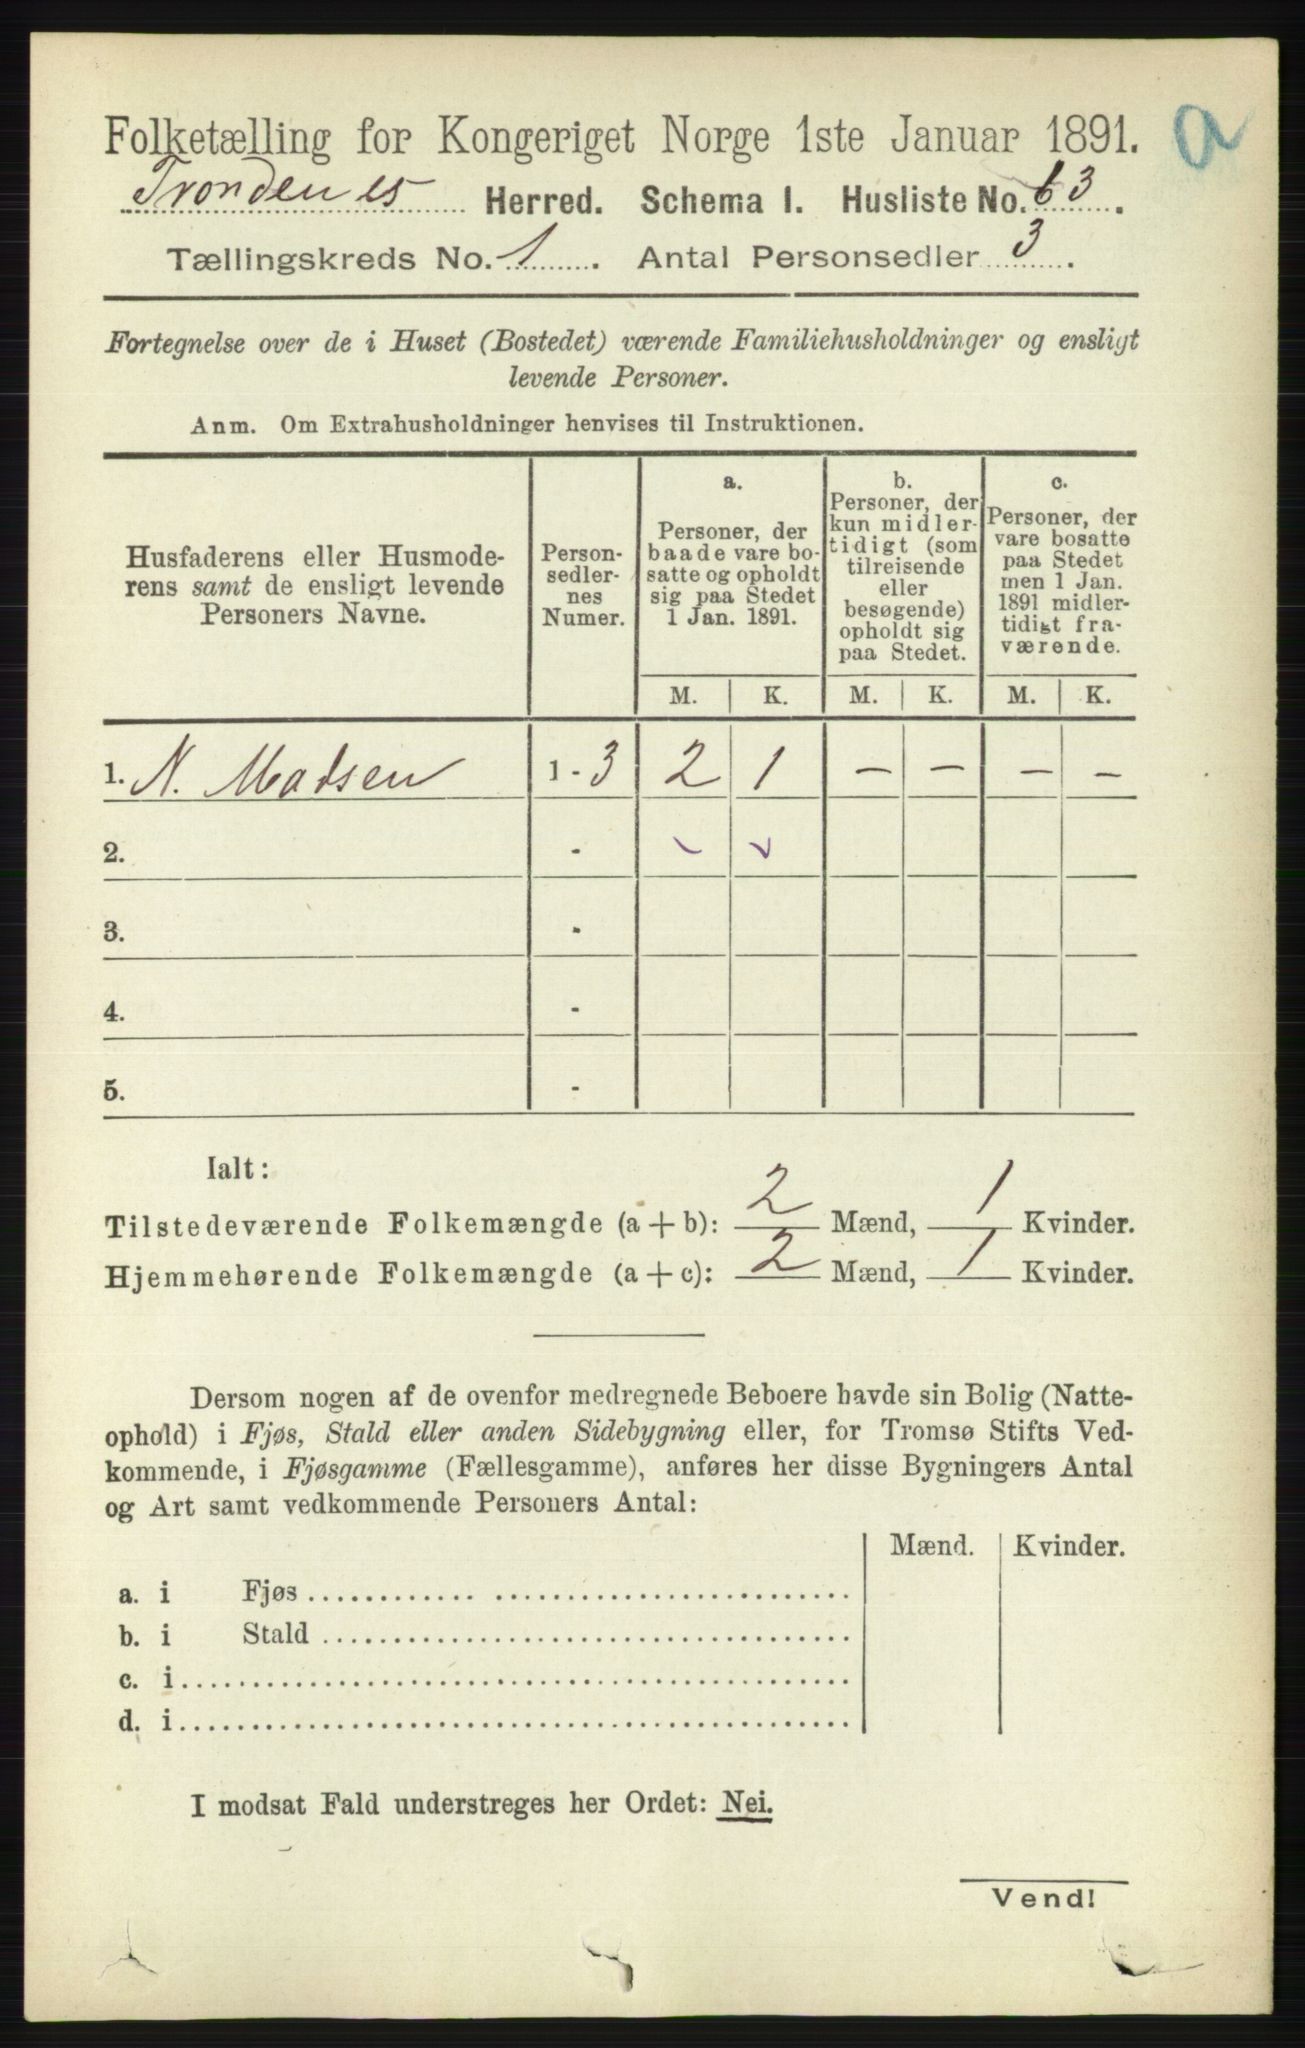 a
Folketælling for Kongeriget Norge 1ste Januar 1891.
Trondenes Herred. Schema I. Husliste No. 63.
Tællingskreds No. 1. Antal Personsedler 3.
Fortegnelse over de i Huset (Bostedet) værende Familiehusholdninger og ensligt
levende Personer.
Anm. Om Extrahusholdninger henvises til Instruktionen.
Husfaderens eller Husmode-
rens samt de ensligt levende
Personers Navne.
Person-
sedler-
nes
Numer.
a.
Personer, der
baade vare bo-
satte og opholdt
sig paa Stedet
1 Jan. 1891.
b.
Personer, der
kun midler-
tidigt (som
tilreisende
eller
besøgende)
opholdt sig
paa Stedet.
c.
Personer, der
vare bosatte
paa Stedet
men 1 Jan.
1891 midler-
tidigt fra-
værende.
M. K. M. K. M. K.
1. N. Madsen 1 - 3 2 1 – – – –
2. -
3. -
4. -
5. -
Ialt:
Tilstedeværende Folkemængde (a + b): 2 Mænd, 1 Kvinder.
Hjemmehørende Folkemængde (a + c): 2 Mænd, 1 Kvinder.
Dersom nogen af de ovenfor medregnede Beboere havde sin Bolig (Natte-
ophold) i Fjøs, Stald eller anden Sidebygning eller, for Tromsø Stifts Ved-
kommende, i Fjøsgamme (Fællesgamme), anføres her disse Bygningers Antal
og Art samt vedkommende Personers Antal:
Mænd. Kvinder.
a. i Fjøs
b. i Stald
c. i
d. i
I modsat Fald understreges her Ordet: Nei.
Vend!